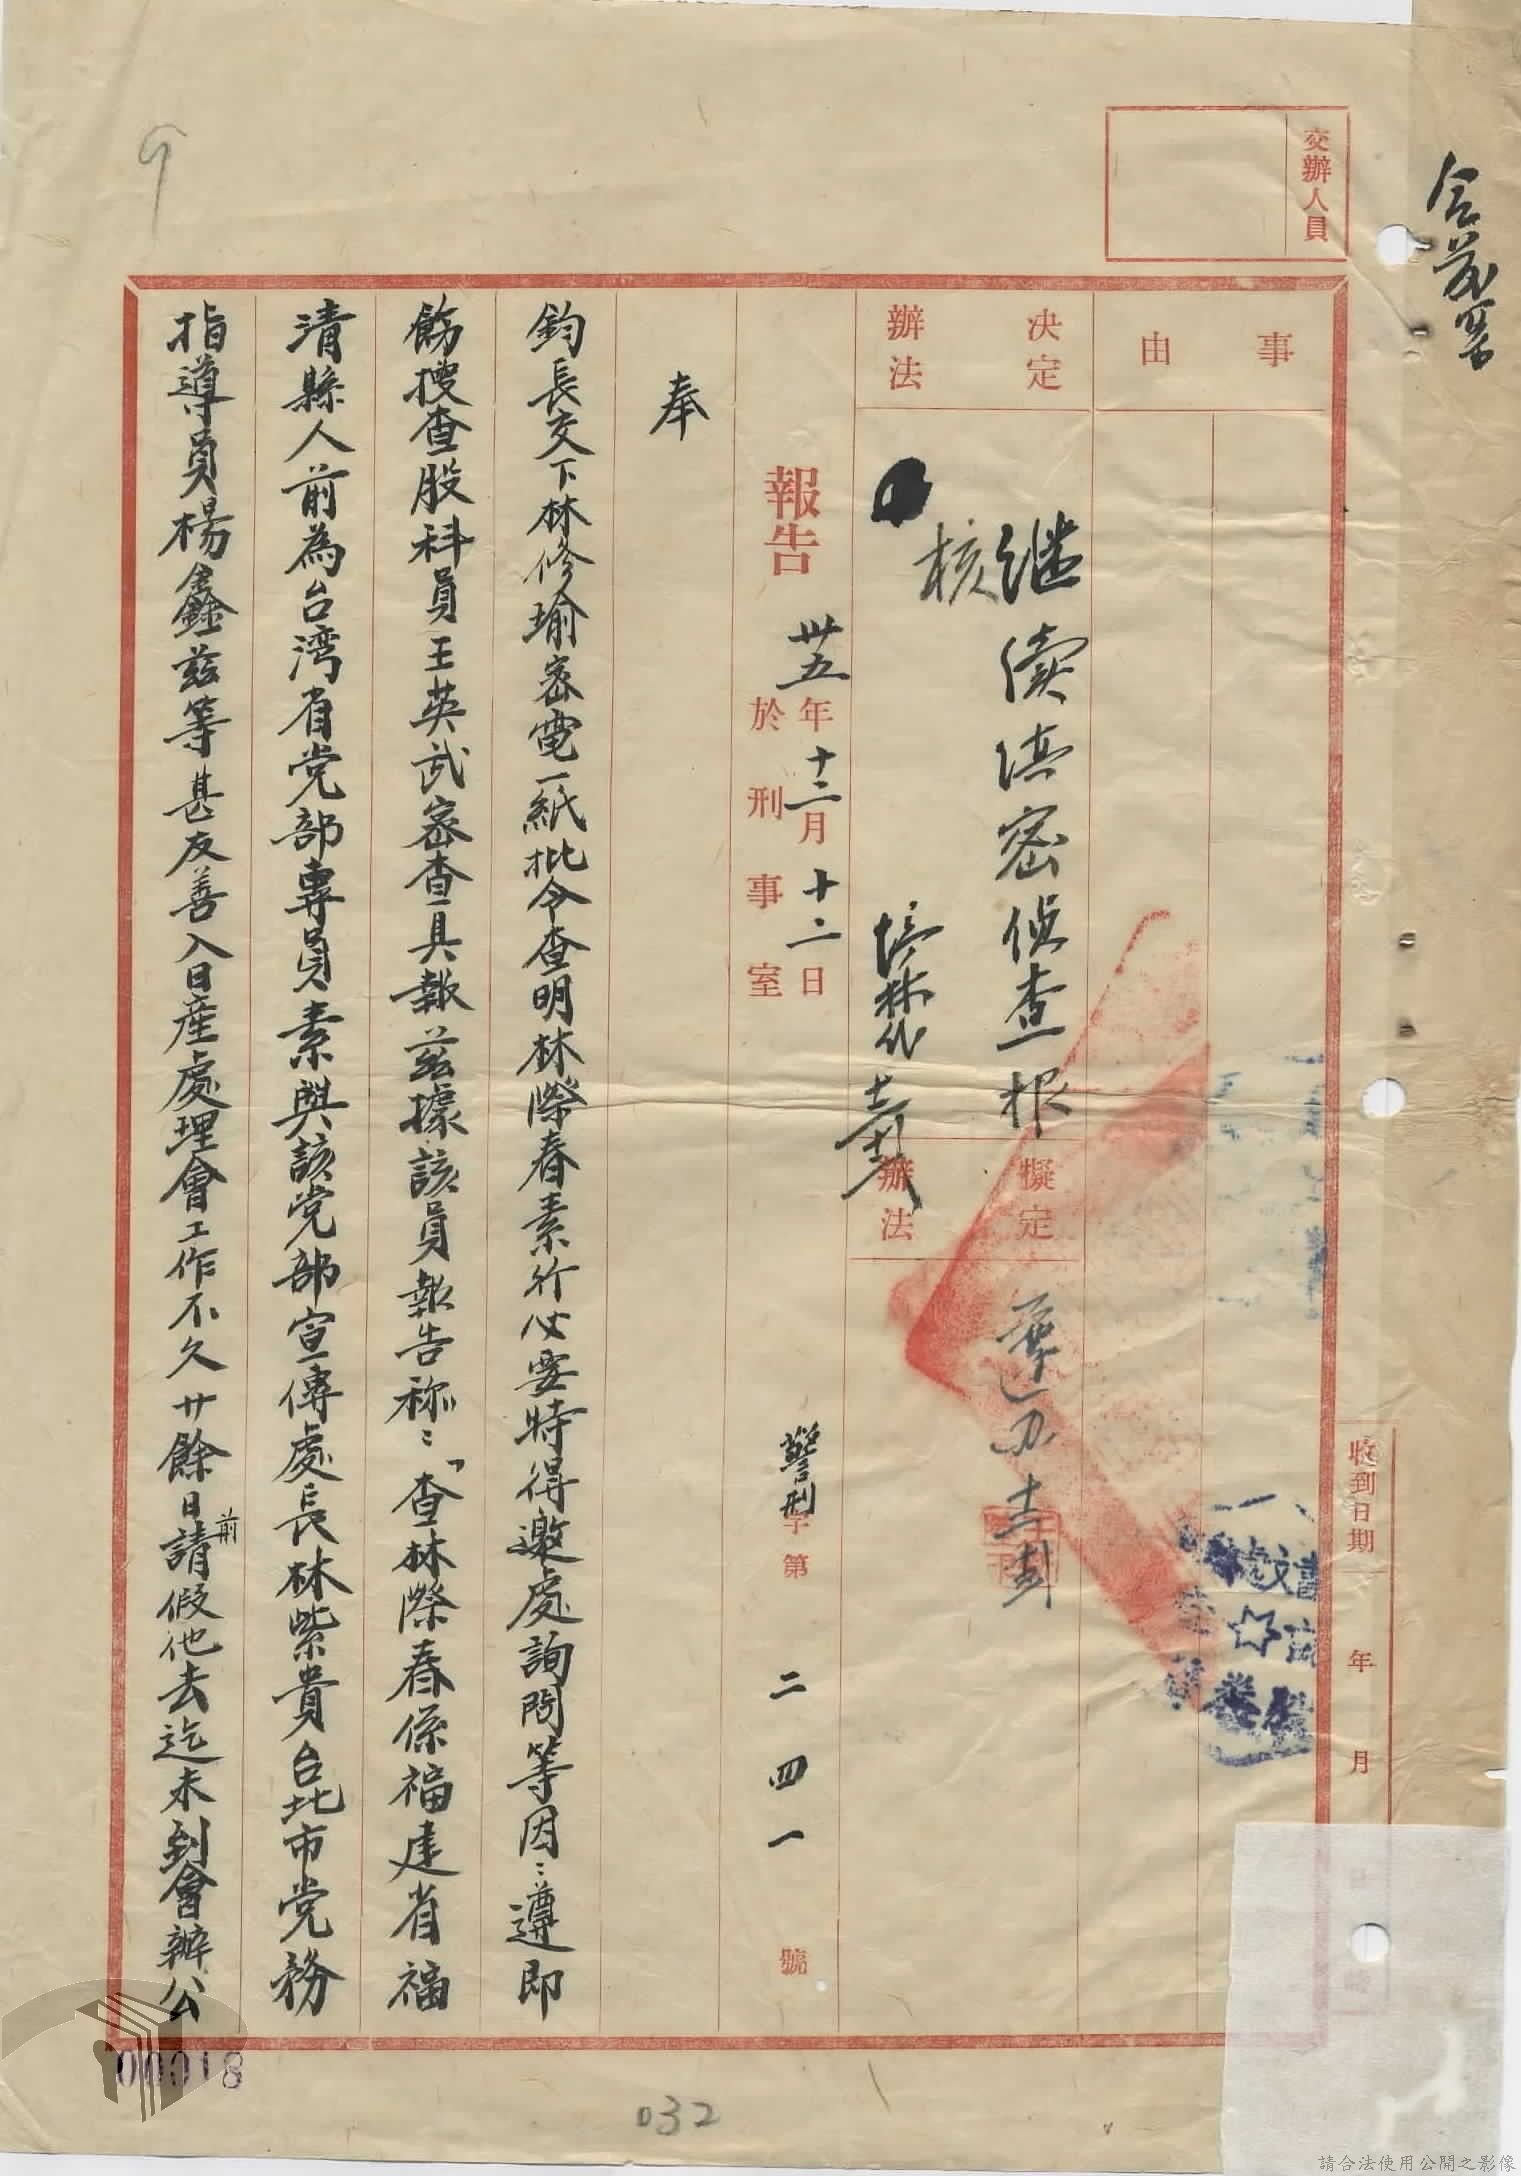 交辦人員
事由
決定辦法
继续法密侦查报
核
擬定辦法
收到日期 年 月
報告
卅五年十二月十二日
於刑事室
警刑字第二四一號
奉
鈞長交下林修瑜密電一紙批令查明林際春素行必要時得邀處詢問等因：遵即
飭搜查股科員王英武密查具報茲據該員報告称：「查林際春係福建省福
清縣人前為台湾省党部專員素與該党部宣傳處長林紫貴台北市党務
指導員楊鑫茲等甚友善入日產處理會工作不久廿餘日前請假他去迄未到會辦公
00018
032
9
請合法使用公開之影像